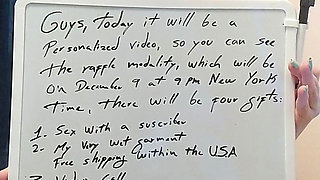 Guys, today it will be a
Personalized video, so you can see
the raffle modality, which will be
on December 9 at 9 pm New York
Time, there will be four gifts:
1- Sex with a suscriber
2- My Very wet garment
Free shipping within the USA
Video Call